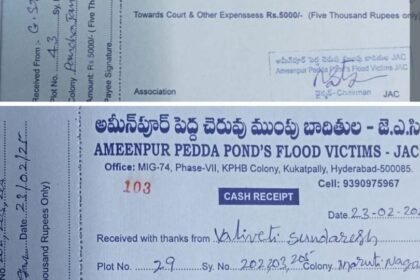 Received From : G. S
Plot No. 43 S
Colony
Amount: Rs 5000/- ( Five Tho
Payee Signature.
Towards Court & Other Expensess Rs.5000/- (Five Thousand Rupees only)
అమీన్‌పూర్ పెద్ద చెరువు ముంపు బాధితుల JAC
Ameenpur Pedda Pond's Flood Victims JAC
చైర్మన్-Chairman JAC
23/02/25
Thousand Rupees Only)
అమీన్‌పూర్ పెద్ద చెరువు ముంపు బాదితుల - జె.ఎ.సి
AMEENPUR PEDDA POND'S FLOOD VICTIMS - JAC
Office: MIG-74, Phase-VII, KPHB Colony, Kukatpally, Hyderabad-500085.
103
Cell: 9390975967
CASH RECEIPT
Date. 23-02-202
Received with thanks from Valiveti Sundaresh
Plot No. 29 Sy. No. 202,203,205 Colony. Maruti Naga